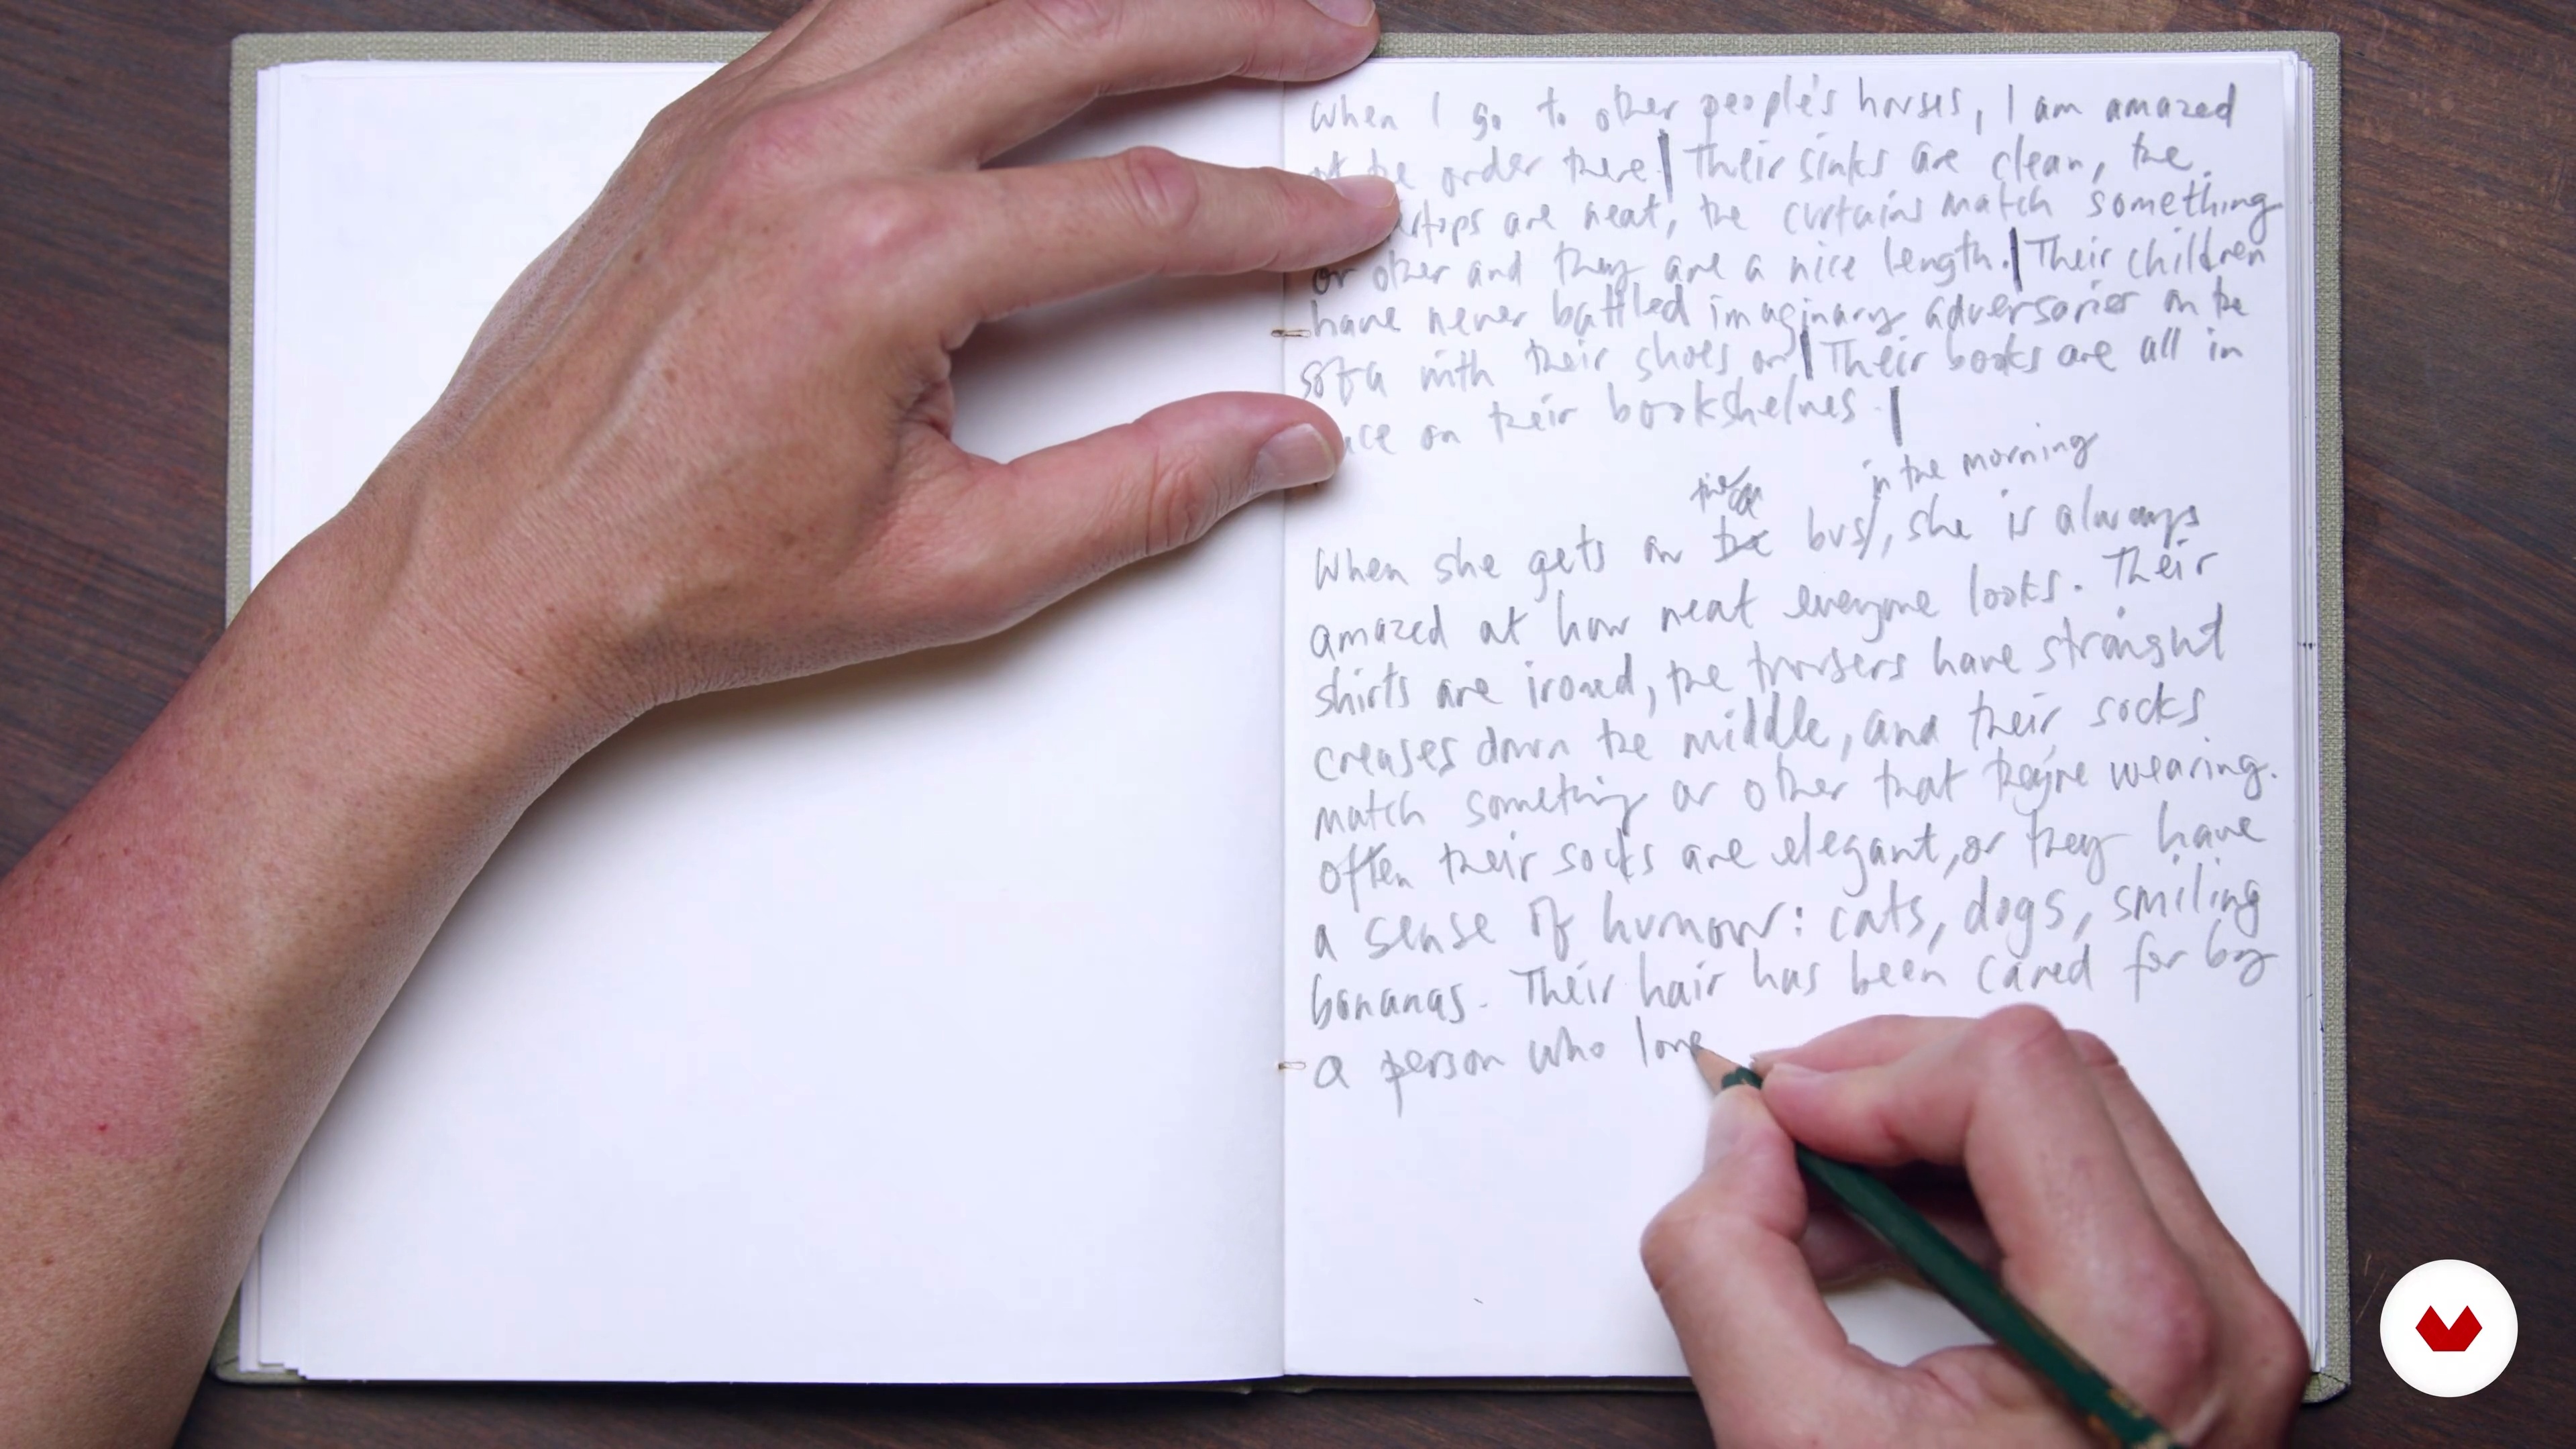 When I go to other people's houses, I am amazed
at the order there. Their sinks are clean, the
are neat, the curtains match something
or other and they are a nice length. Their children
have never battled imaginary adversaries on the
sofa with their shoes on. Their books are all in
on their bookshelves.
in the morning
When she gets on the bus, she is always
amazed at how neat everyone looks. Their
shirts are ironed, the trousers have straight
creases down the middle, and their socks
match something or other that they're wearing.
Often their socks are elegant, or they have
a sense of humour: cats, dogs, smiling
bananas. Their hair has been cared for by
a person who love